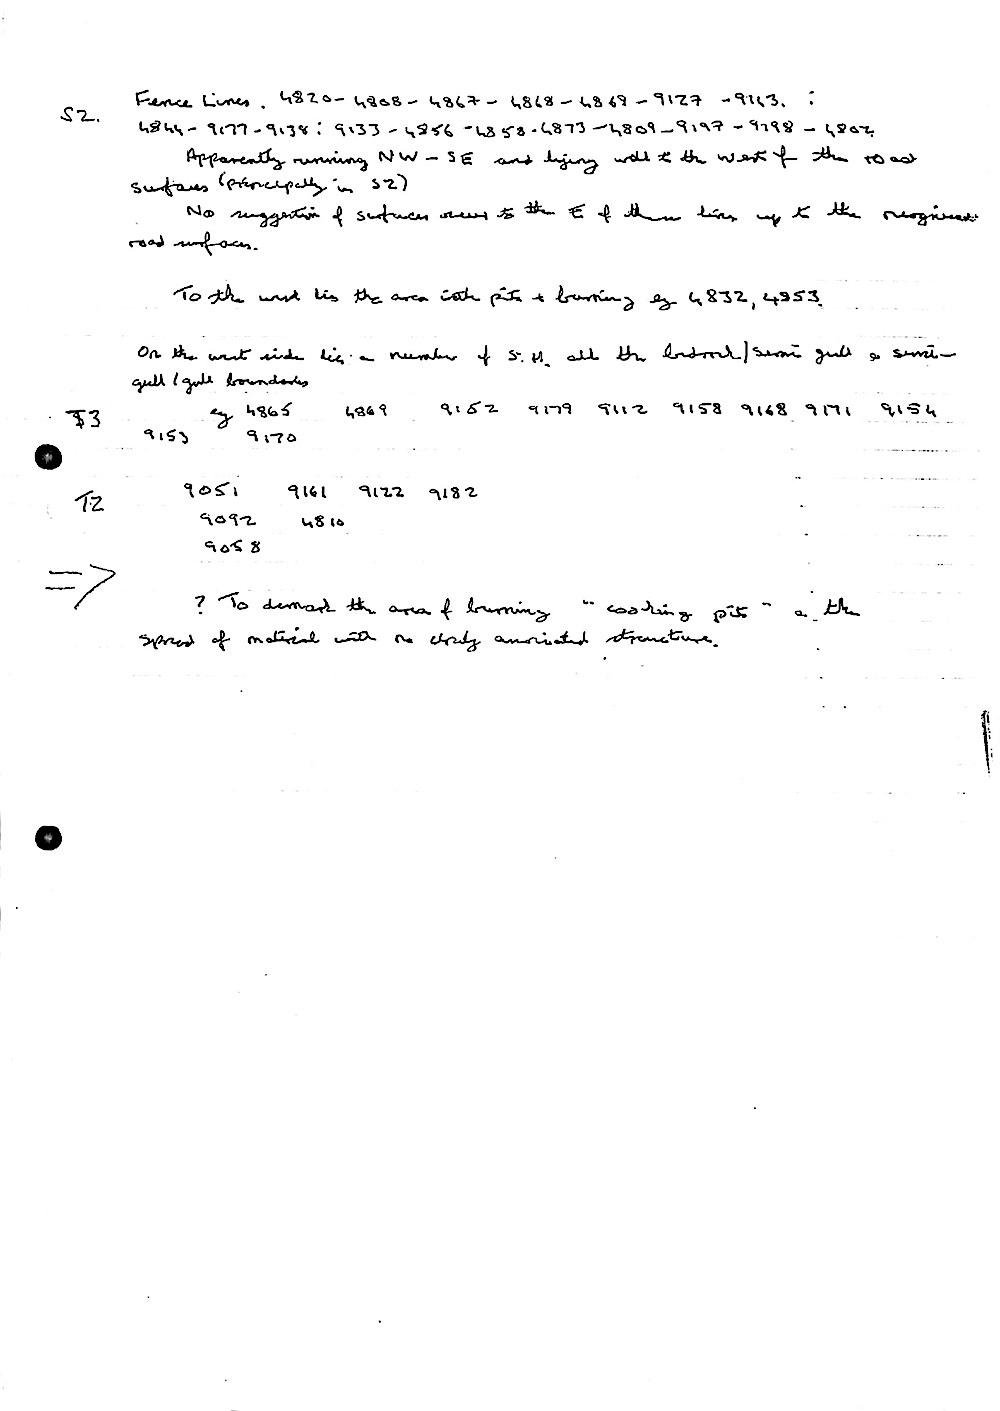 S2. Fence Lines. 4820 - 4808 - 4867 - 4868 - 4869 - 9127 - 9163. :
4844 - 9177 - 9138 : 9133 - 4856 - 4858 - 4873 - 4809 - 9197 - 9198 - 4802.
Apparently running NW - SE and lying well to the West of the road
surfaces (principally in S2)
No suggestion of surfaces occurs to the E of these lines up to the recognised
road surfaces.
To the west lies the area with pits + burning eg 4832, 4853.
On the west side lie a number of S.H. all the bedrock / semi gull or semi-
gull / gull boundaries
T3 eg 4865 4869 9152 9179 9112 9158 9168 9171 9154
9153 9170
T2 9051 9161 9122 9182
9092 4810
9058
=> ? To demark the area of burning "cooking pits" or the
spread of material with no clearly associated structure.